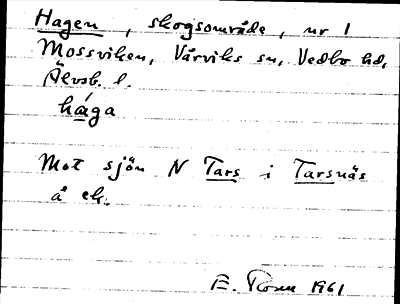 Hagen, skogsområde, nr 1
Mossviken, Vårviks sn, Vedbo hd,
Älvsb. l.
hága
Mot sjön N Tars i Tarsnäs
å ek.
E. 1961